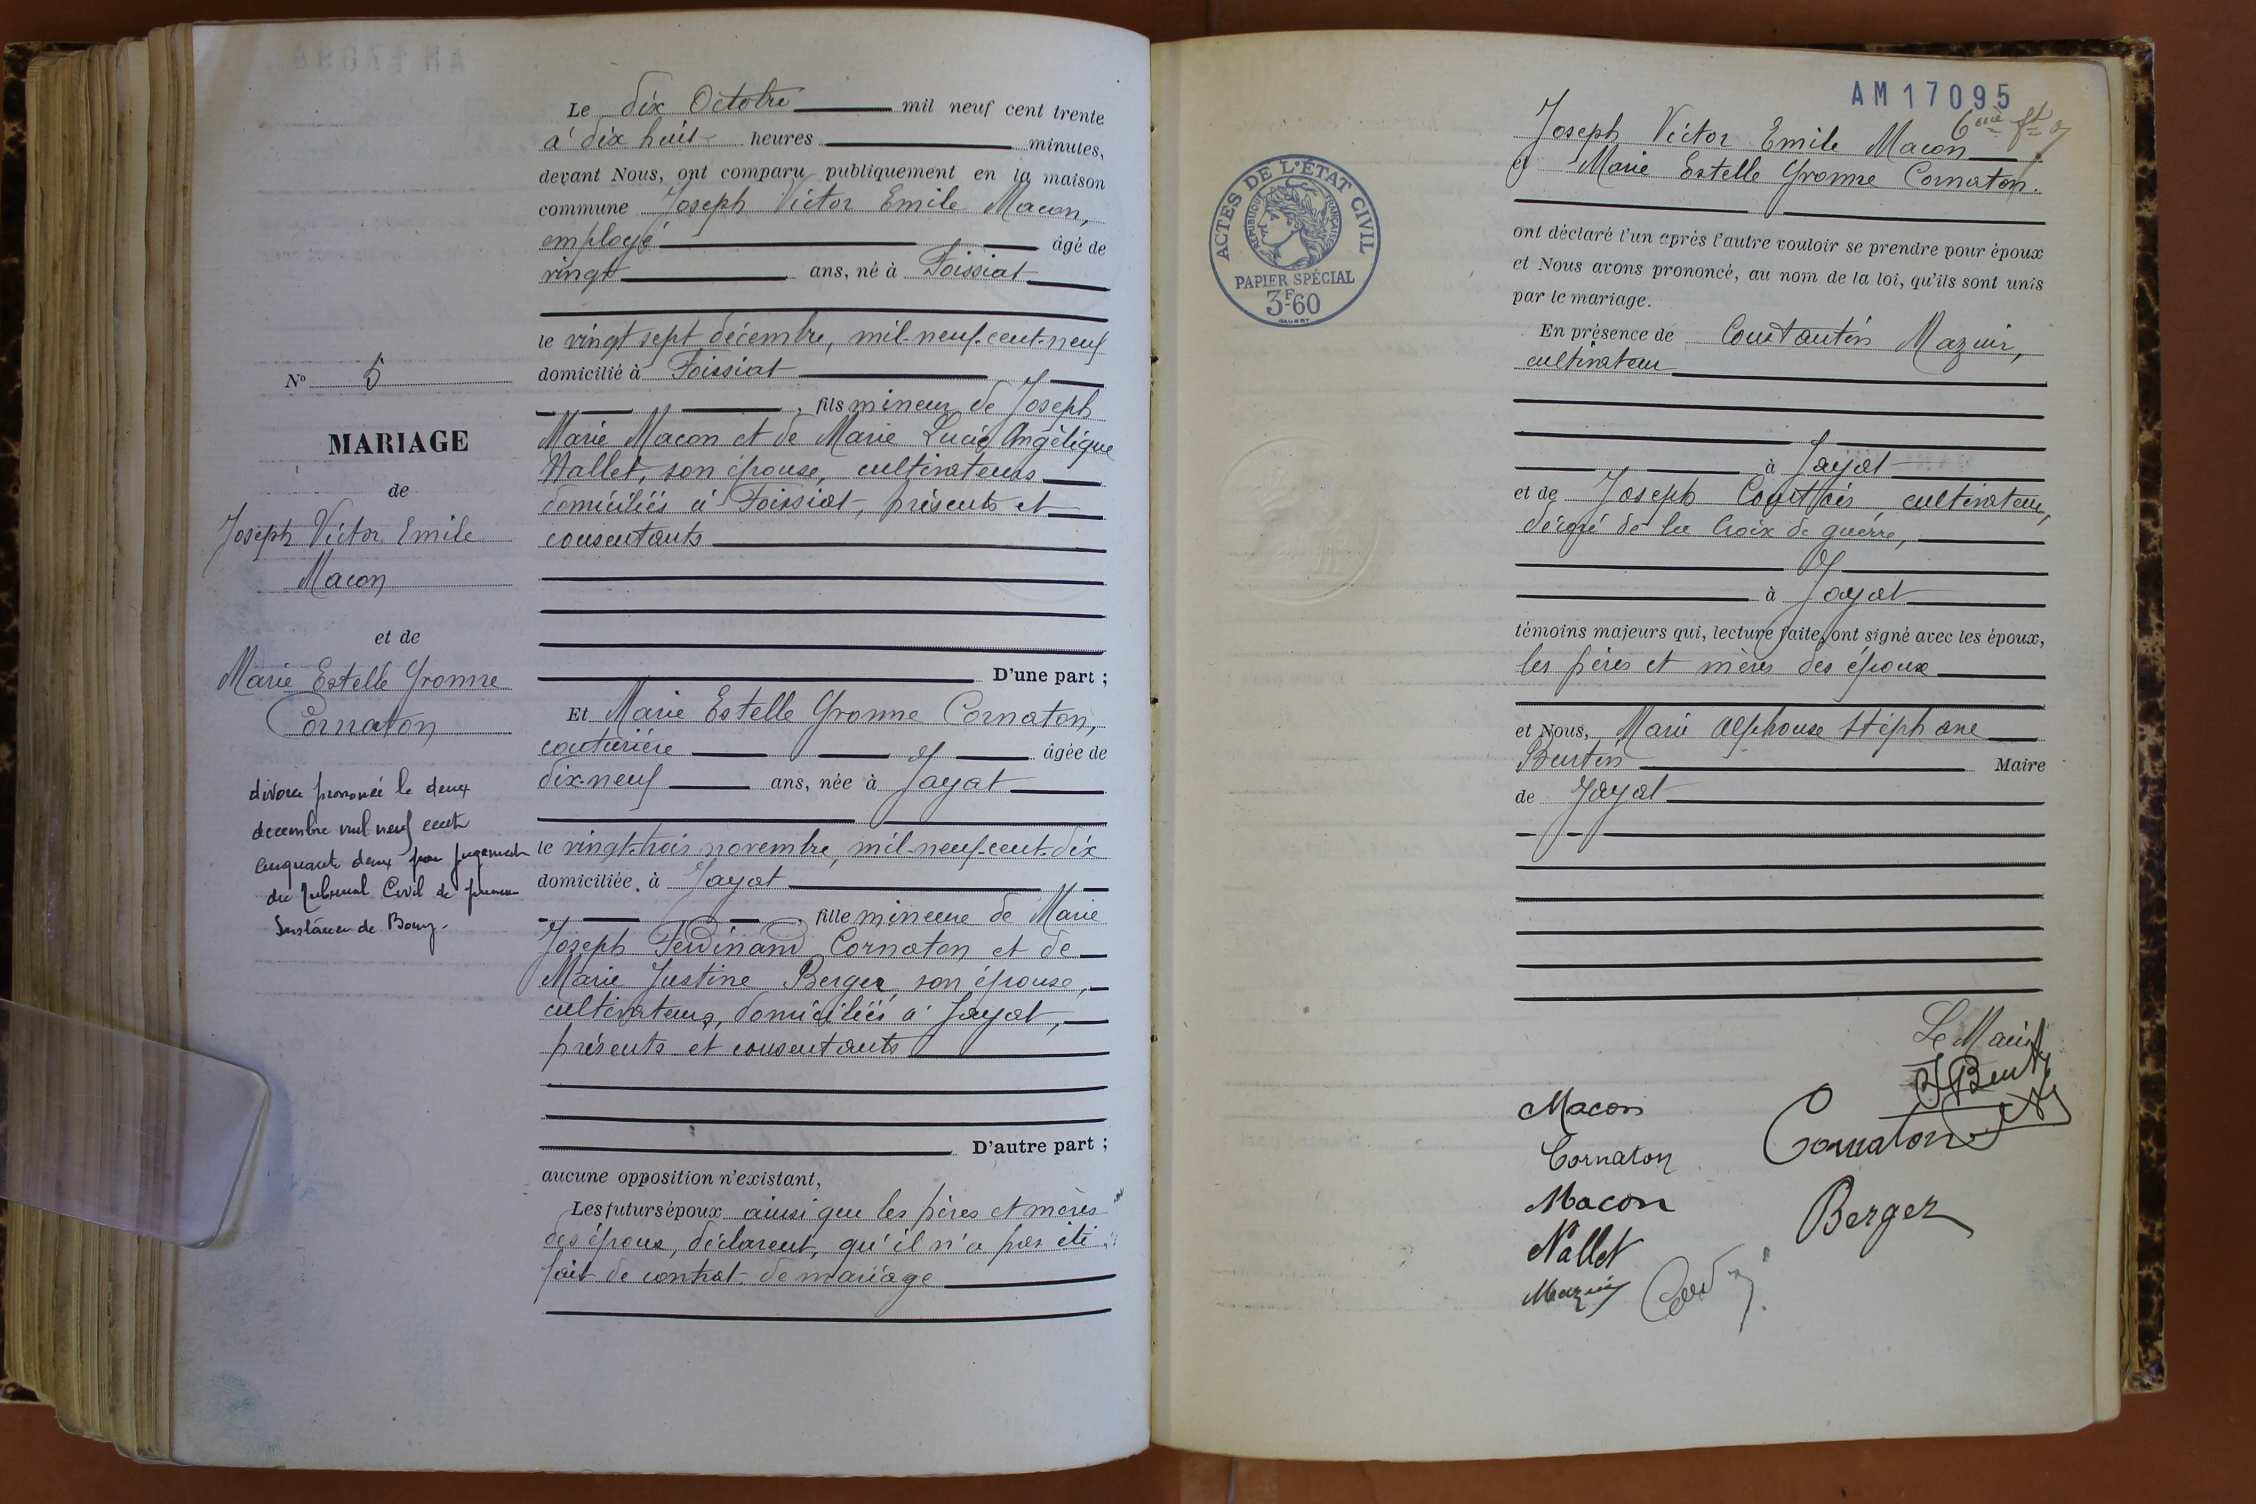 N° 5
MARIAGE
de
Joseph Victor Emile
Macon
et de
Marie Estelle Yvonne
Cornaton
divorce prononcé le deux
decembre mil neuf cent
cinquante deux par jugement
du Tribunal Civil de première
Instance de Bourg.
Le dix Octobre mil neuf cent trente
à dix huit heures minutes,
devant Nous, ont comparu publiquement en la maison
commune Joseph Victor Emile Macon,
employé âgé de
vingt ans, né à Foissiat
le vingt sept décembre, mil-neuf-cent-neuf
domicilié à Foissiat
, fils mineur de Joseph
Marie Macon et de Marie Lucie Angélique
Nallet, son épouse, cultivateurs
domiciliés à Foissiat, présents et
consentants
D'une part ;
Et Marie Estelle Yvonne Cornaton,
couturière âgée de
dix-neuf ans, née à Jayat
le vingt-trois novembre, mil-neuf-cent-dix
domiciliée à Jayat
, fille mineure de Marie
Joseph Ferdinand Cornaton et de
Marie Justine Berger son épouse,
cultivateurs, domiciliés à Jayat,
présents et consentants
D'autre part ;
aucune opposition n'existant,
Les futurs époux ainsi que les pères et mères
des époux, déclarent, qu'il n'a pas été
fait de contrat de mariage
AM17095
6ème ft
ACTES DE L'ÉTAT CIVIL
RÉPUBLIQUE FRANÇAISE
PAPIER SPÉCIAL
3F60
Joseph Victor Emile Macon
et Marie Estelle Yvonne Cornaton.
ont déclaré l'un après l'autre vouloir se prendre pour époux
et Nous avons prononcé, au nom de la loi, qu'ils sont unis
par le mariage.
En présence de Constantin Mazuir,
cultivateur
à Jayat
et de Joseph Courtois, cultivateur,
décoré de la Croix de guerre,
à Jayat
témoins majeurs qui, lecture faite, ont signé avec les époux,
les pères et mères des époux
et Nous, Marie Alphonse Stéphane
Beutin Maire
de Jayat
Le Maire
Macon
Cornaton
Cornaton
Macon
Berger
Nallet
Mazuir